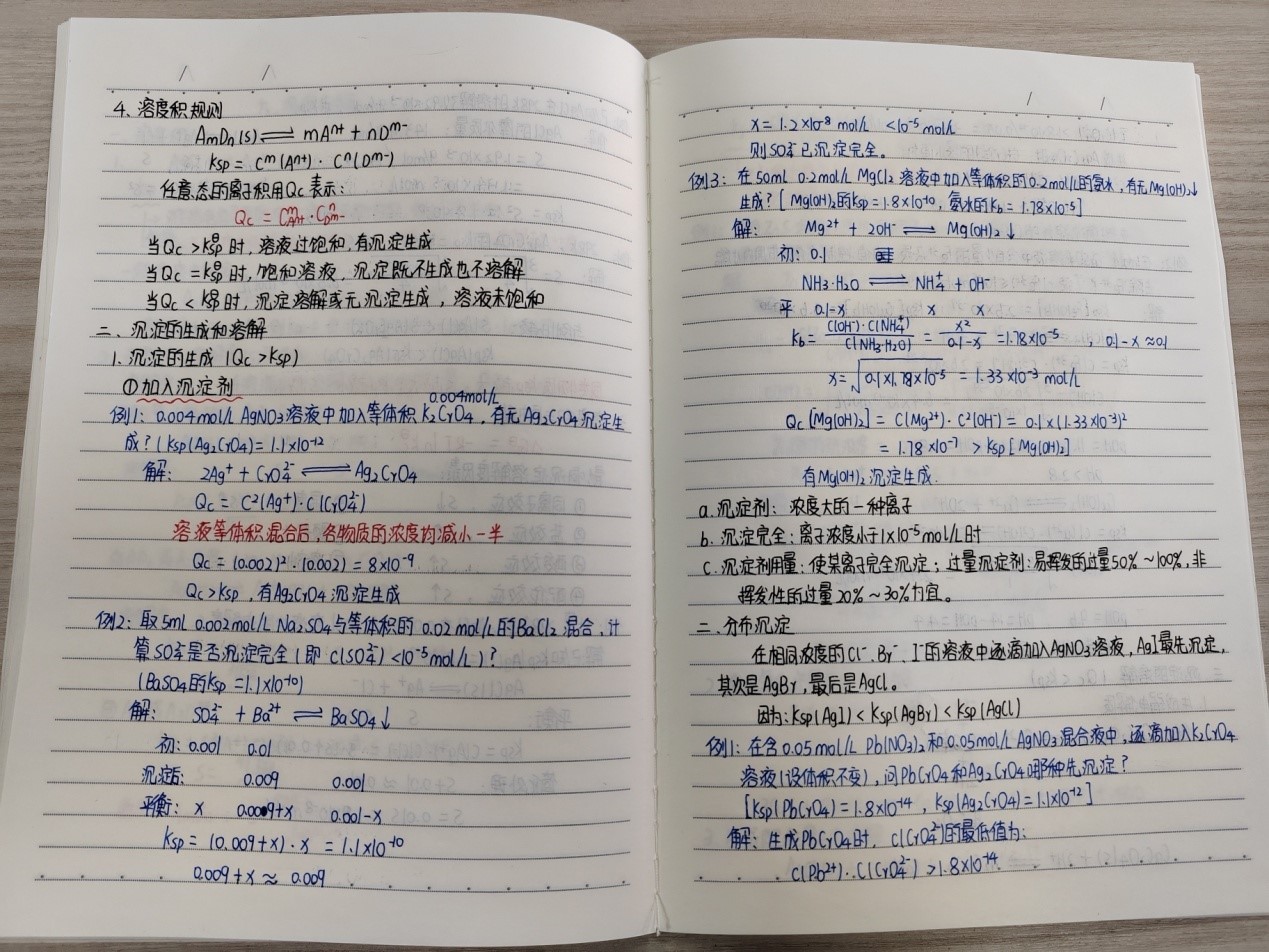 4. 溶度积规则
AmDn(s) ⇌ mAⁿ⁺ + nDᵐ⁻
Ksp = Cᵐ(Aⁿ⁺)·Cⁿ(Dᵐ⁻)
任意态的离子积用Qc表示:
Qc = Cᵐ_Aⁿ⁺·Cⁿ_Dᵐ⁻
当Qc > K^θsp时, 溶液过饱和, 有沉淀生成
当Qc = K^θsp时, 饱和溶液, 沉淀既不生成也不溶解
当Qc < K^θsp时, 沉淀溶解或无沉淀生成, 溶液未饱和
二、沉淀的生成和溶解
1. 沉淀的生成 (Qc > Ksp)
①加入沉淀剂
0.004mol/L
例1: 0.004mol/L AgNO₃溶液中加入等体积K₂CrO₄, 有无Ag₂CrO₄沉淀生
成? (Ksp(Ag₂CrO₄) = 1.1×10⁻¹²
解: 2Ag⁺ + CrO₄²⁻ ⇌ Ag₂CrO₄
Qc = C²(Ag⁺)·C(CrO₄²⁻)
溶液等体积混合后, 各物质的浓度均减小一半
Qc = (0.002)²·(0.002) = 8×10⁻⁹
Qc > Ksp, 有Ag₂CrO₄沉淀生成
例2: 取5ml 0.002mol/L Na₂SO₄与等体积的0.02mol/L的BaCl₂混合, 计
算SO₄²⁻是否沉淀完全 (即C(SO₄²⁻) < 10⁻⁵mol/L)?
(BaSO₄的Ksp = 1.1×10⁻¹⁰)
解: SO₄²⁻ + Ba²⁺ ⇌ BaSO₄↓
初: 0.001 0.01
沉淀后: 0.009 0.001
平衡: x 0.009+x 0.001-x
Ksp = (0.009+x)·x = 1.1×10⁻¹⁰
0.009+x ≈ 0.009
x = 1.2×10⁻⁸ mol/L < 10⁻⁵ mol/L
则SO₄²⁻已沉淀完全。
例3: 在50ml 0.2mol/L MgCl₂溶液中加入等体积的0.2mol/L的氨水, 有无Mg(OH)₂↓
生成? [Mg(OH)₂的Ksp = 1.8×10⁻¹⁰, 氨水的Kb = 1.78×10⁻⁵]
解: Mg²⁺ + 2OH⁻ ⇌ Mg(OH)₂↓
初: 0.1
NH₃·H₂O ⇌ NH₄⁺ + OH⁻
平 0.1-x x x
Kb = C(OH⁻)·C(NH₄⁺)/C(NH₃·H₂O) = x²/0.1-x = 1.78×10⁻⁵, 0.1-x≈0.1
x = √0.1×1.78×10⁻⁵ = 1.33×10⁻³ mol/L
Qc[Mg(OH)₂] = C(Mg²⁺)·C²(OH⁻) = 0.1×(1.33×10⁻³)²
= 1.78×10⁻⁷ > Ksp[Mg(OH)₂]
有Mg(OH)₂沉淀生成.
a. 沉淀剂: 浓度大的一种离子
b. 沉淀完全: 离子浓度小于1×10⁻⁵mol/L时
c. 沉淀剂用量: 使某离子完全沉淀; 过量沉淀剂: 易挥发的过量50%~100%, 非
挥发性的过量20%~30%为宜。
二、分布沉淀
在相同浓度的Cl⁻、Br⁻、I⁻的溶液中逐滴加入AgNO₃溶液, AgI最先沉淀,
其次是AgBr, 最后是AgCl。
因为: Ksp(AgI) < Ksp(AgBr) < Ksp(AgCl)
例1: 在含0.05mol/L Pb(NO₃)₂和0.05mol/L AgNO₃混合液中, 逐滴加入K₂CrO₄
溶液(设体积不变), 问PbCrO₄和Ag₂CrO₄哪种先沉淀?
[Ksp(PbCrO₄) = 1.8×10⁻¹⁴, Ksp(Ag₂CrO₄) = 1.1×10⁻¹²]
解: 生成PbCrO₄时, C(CrO₄²⁻)的最低值为:
C(Pb²⁺)·C(CrO₄²⁻) > 1.8×10⁻¹⁴